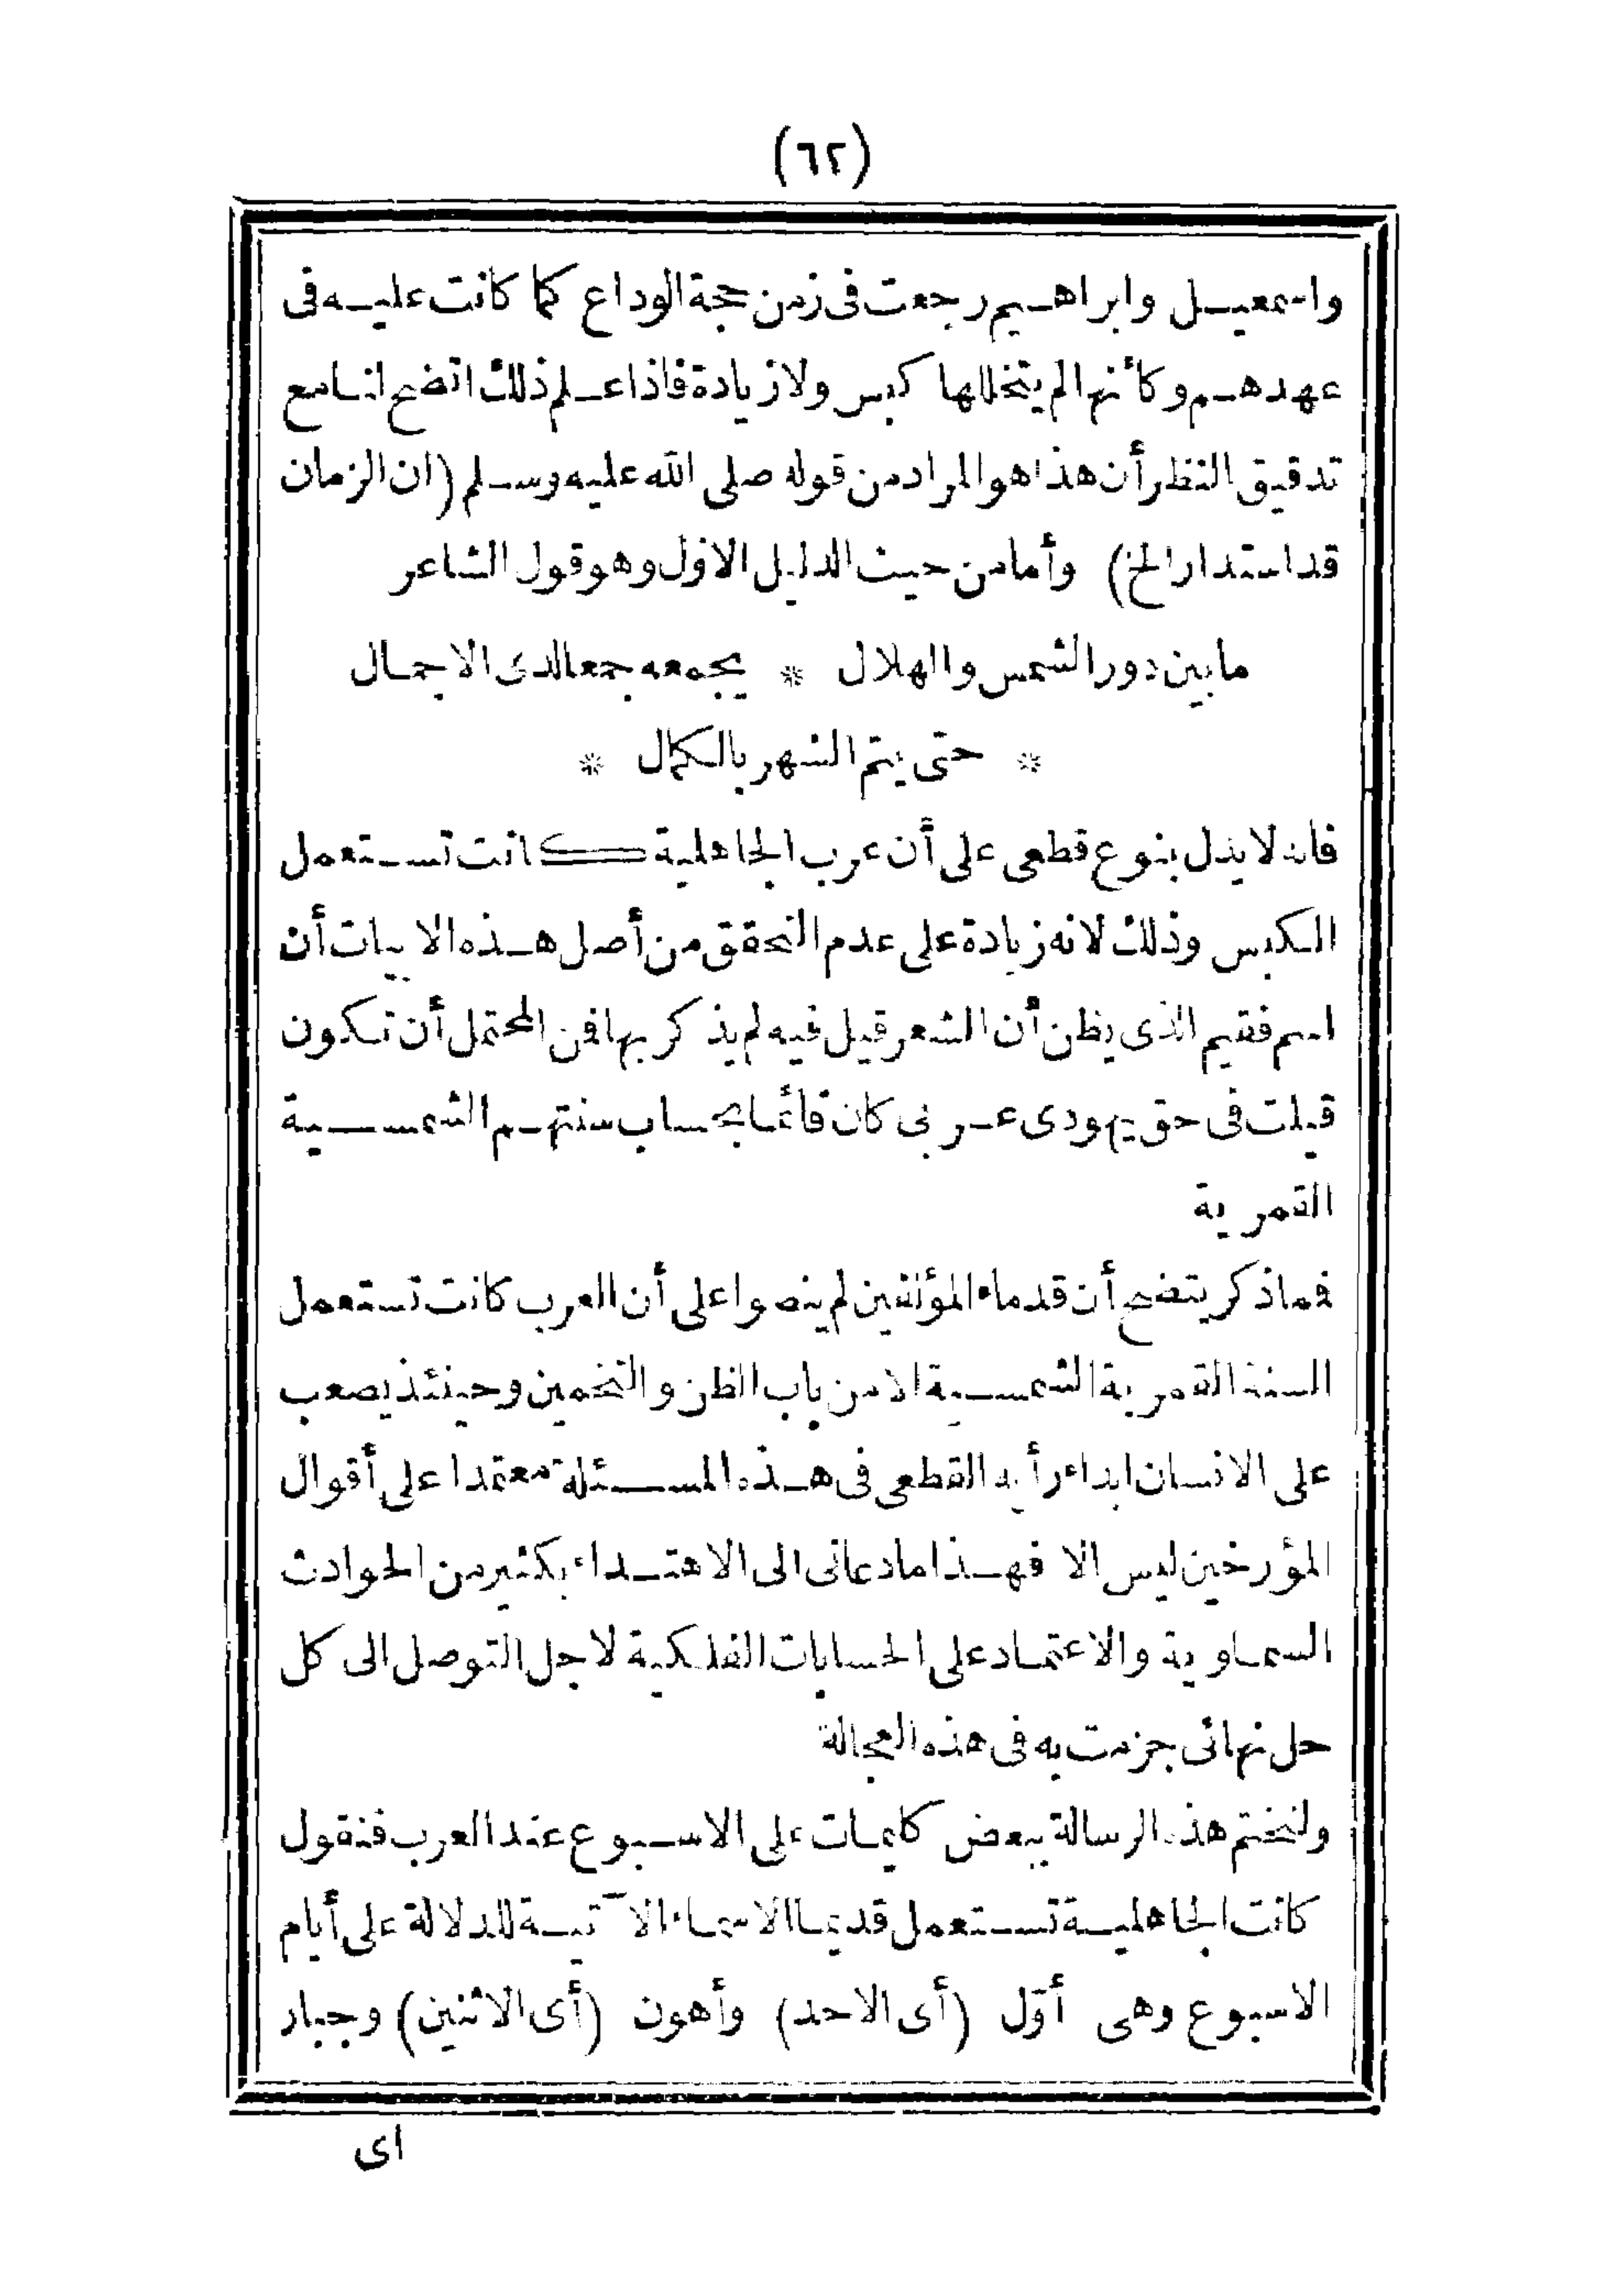 (٦٢)
واسمعيل وابراهيم رجعت فى زمن حجة الوداع كما كانت عليه فى
عهدهم وكأنها لم يتخللها كبس ولا زيادة فاذا علم ذلك اتضح لنا مع
تدقيق النظر أن هذا هو المراد من قوله صلى الله عليه وسلم (ان الزمان
قد استدار الخ) وأما من حيث الدليل الاوّل وهو قول الشاعر
ما بين دور الشمس والهلال * يجمعه جمعا لدى الاجمال
* حتى يتم الشهر بالكمال *
فانه لا يدل بنوع قطعى على أن عرب الجاهلية كانت تستعمل
الكبس وذلك لانه زيادة على عدم التحقق من أصل هذه الابيات أن
اسم فقيم الذى يظن أن الشعر قيل فيه لم يذكر بها فمن المحتمل أن تكون
قيلت فى حق يهودى عربى كان قائما بحساب سنتهم الشمسية
القمرية
فماذكر يتضح أن قدماء المؤلفين لم ينصوا على أن العرب كانت تستعمل
السنة القمرية الشمسية الا من باب الظن والتخمين وحينئذ يصعب
على الانسان ابداء رأيه القطعى فى هذه المسئلة معتمدا على أقوال
المؤرخين ليس الا فهذا ما دعانى الى الاهتداء بكثير من الحوادث
السماوية والاعتماد على الحسابات الفلكية لاجل التوصل الى كل
حل نهائى جزمت به فى هذه العجالة
ولنختم هذه الرسالة ببعض كليمات على الاسبوع عند العرب فنقول
كانت الجاهلية تستعمل قديما الاسماء الآتية للدلالة على أيام
الاسبوع وهى أوّل (أى الاحد) وأهون (أى الاثنين) وجبار
اى